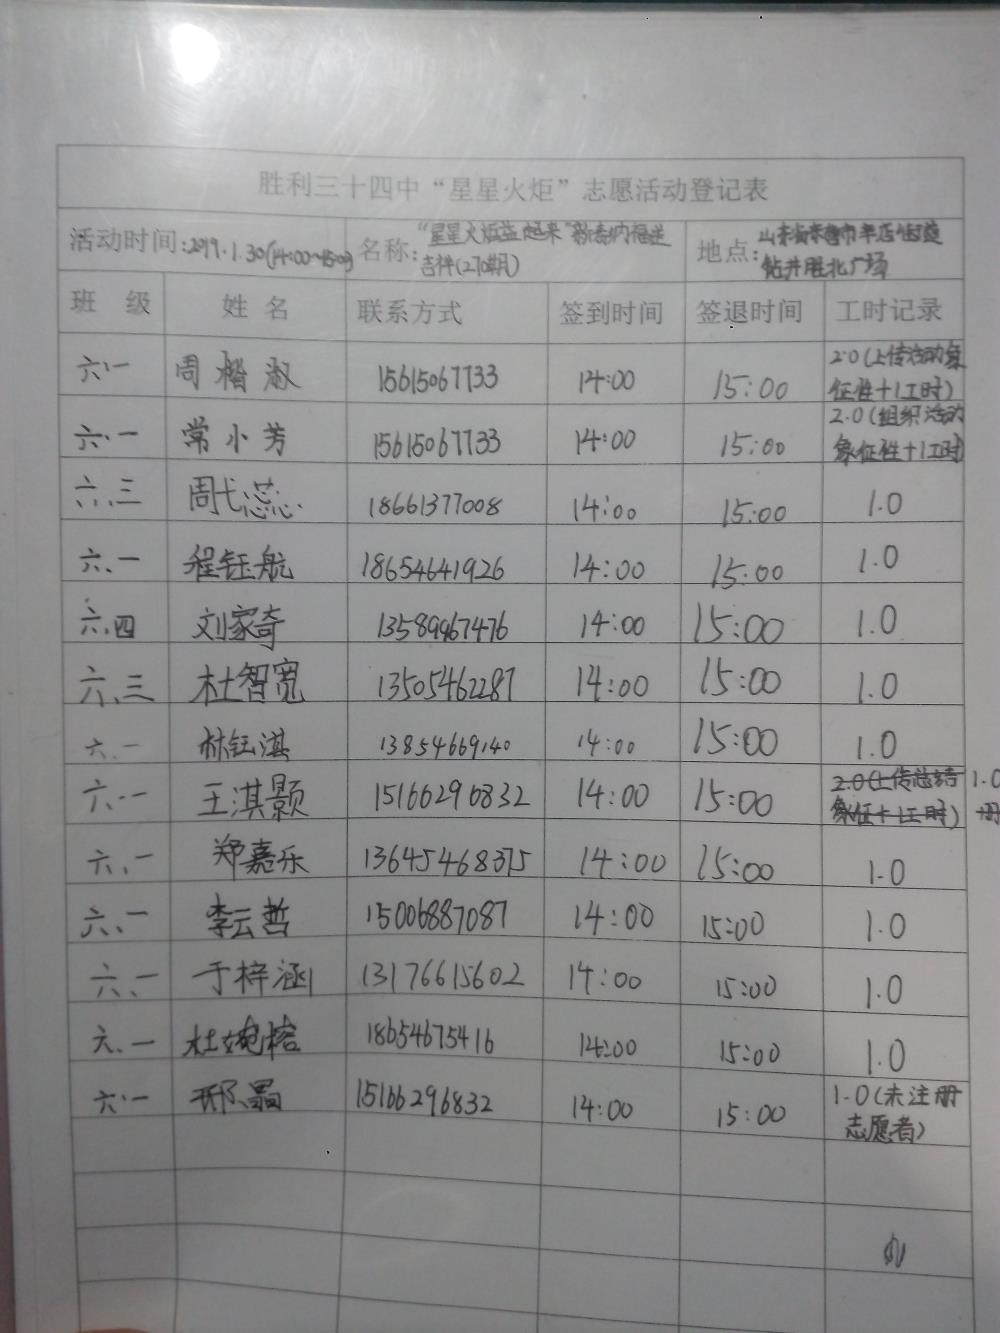 胜利三十四中“星星火炬”志愿活动登记表
活动时间:2019.1.30(14:00~15:00) 名称:“星星火炬益起来” 地点:山东省东营市辛店街道
吉祥(270期) 钻井胜北广场
班 级 姓 名 联系方式 签到时间 签退时间 工时记录
六.一 周楷淑 15615067733 14:00 15:00 2.0(上传活动象
征性+1工时)
六.一 常小芳 15615067733 14:00 15:00 2.0(组织活动
象征性+1工时)
六.三 周弋蕊 18661377008 14:00 15:00 1.0
六.一 程钰航 18654641926 14:00 15:00 1.0
六.四 刘家奇 13589967476 14:00 15:00 1.0
六.三 杜智宽 13505462287 14:00 15:00 1.0
六.一 林钰淇 13854669140 14:00 15:00 1.0
六.一 王淇颢 15166296832 14:00 15:00 2.0(上传总结 1.0
象征+1工时) 册
六.一 郑嘉乐 13645468375 14:00 15:00 1.0
六.一 李云哲 15006887087 14:00 15:00 1.0
六.一 于梓涵 13176615602 14:00 15:00 1.0
六.一 杜婉榕 18654675416 14:00 15:00 1.0
六.一 邢晶 15166296832 14:00 15:00 1.0(未注册
志愿者)